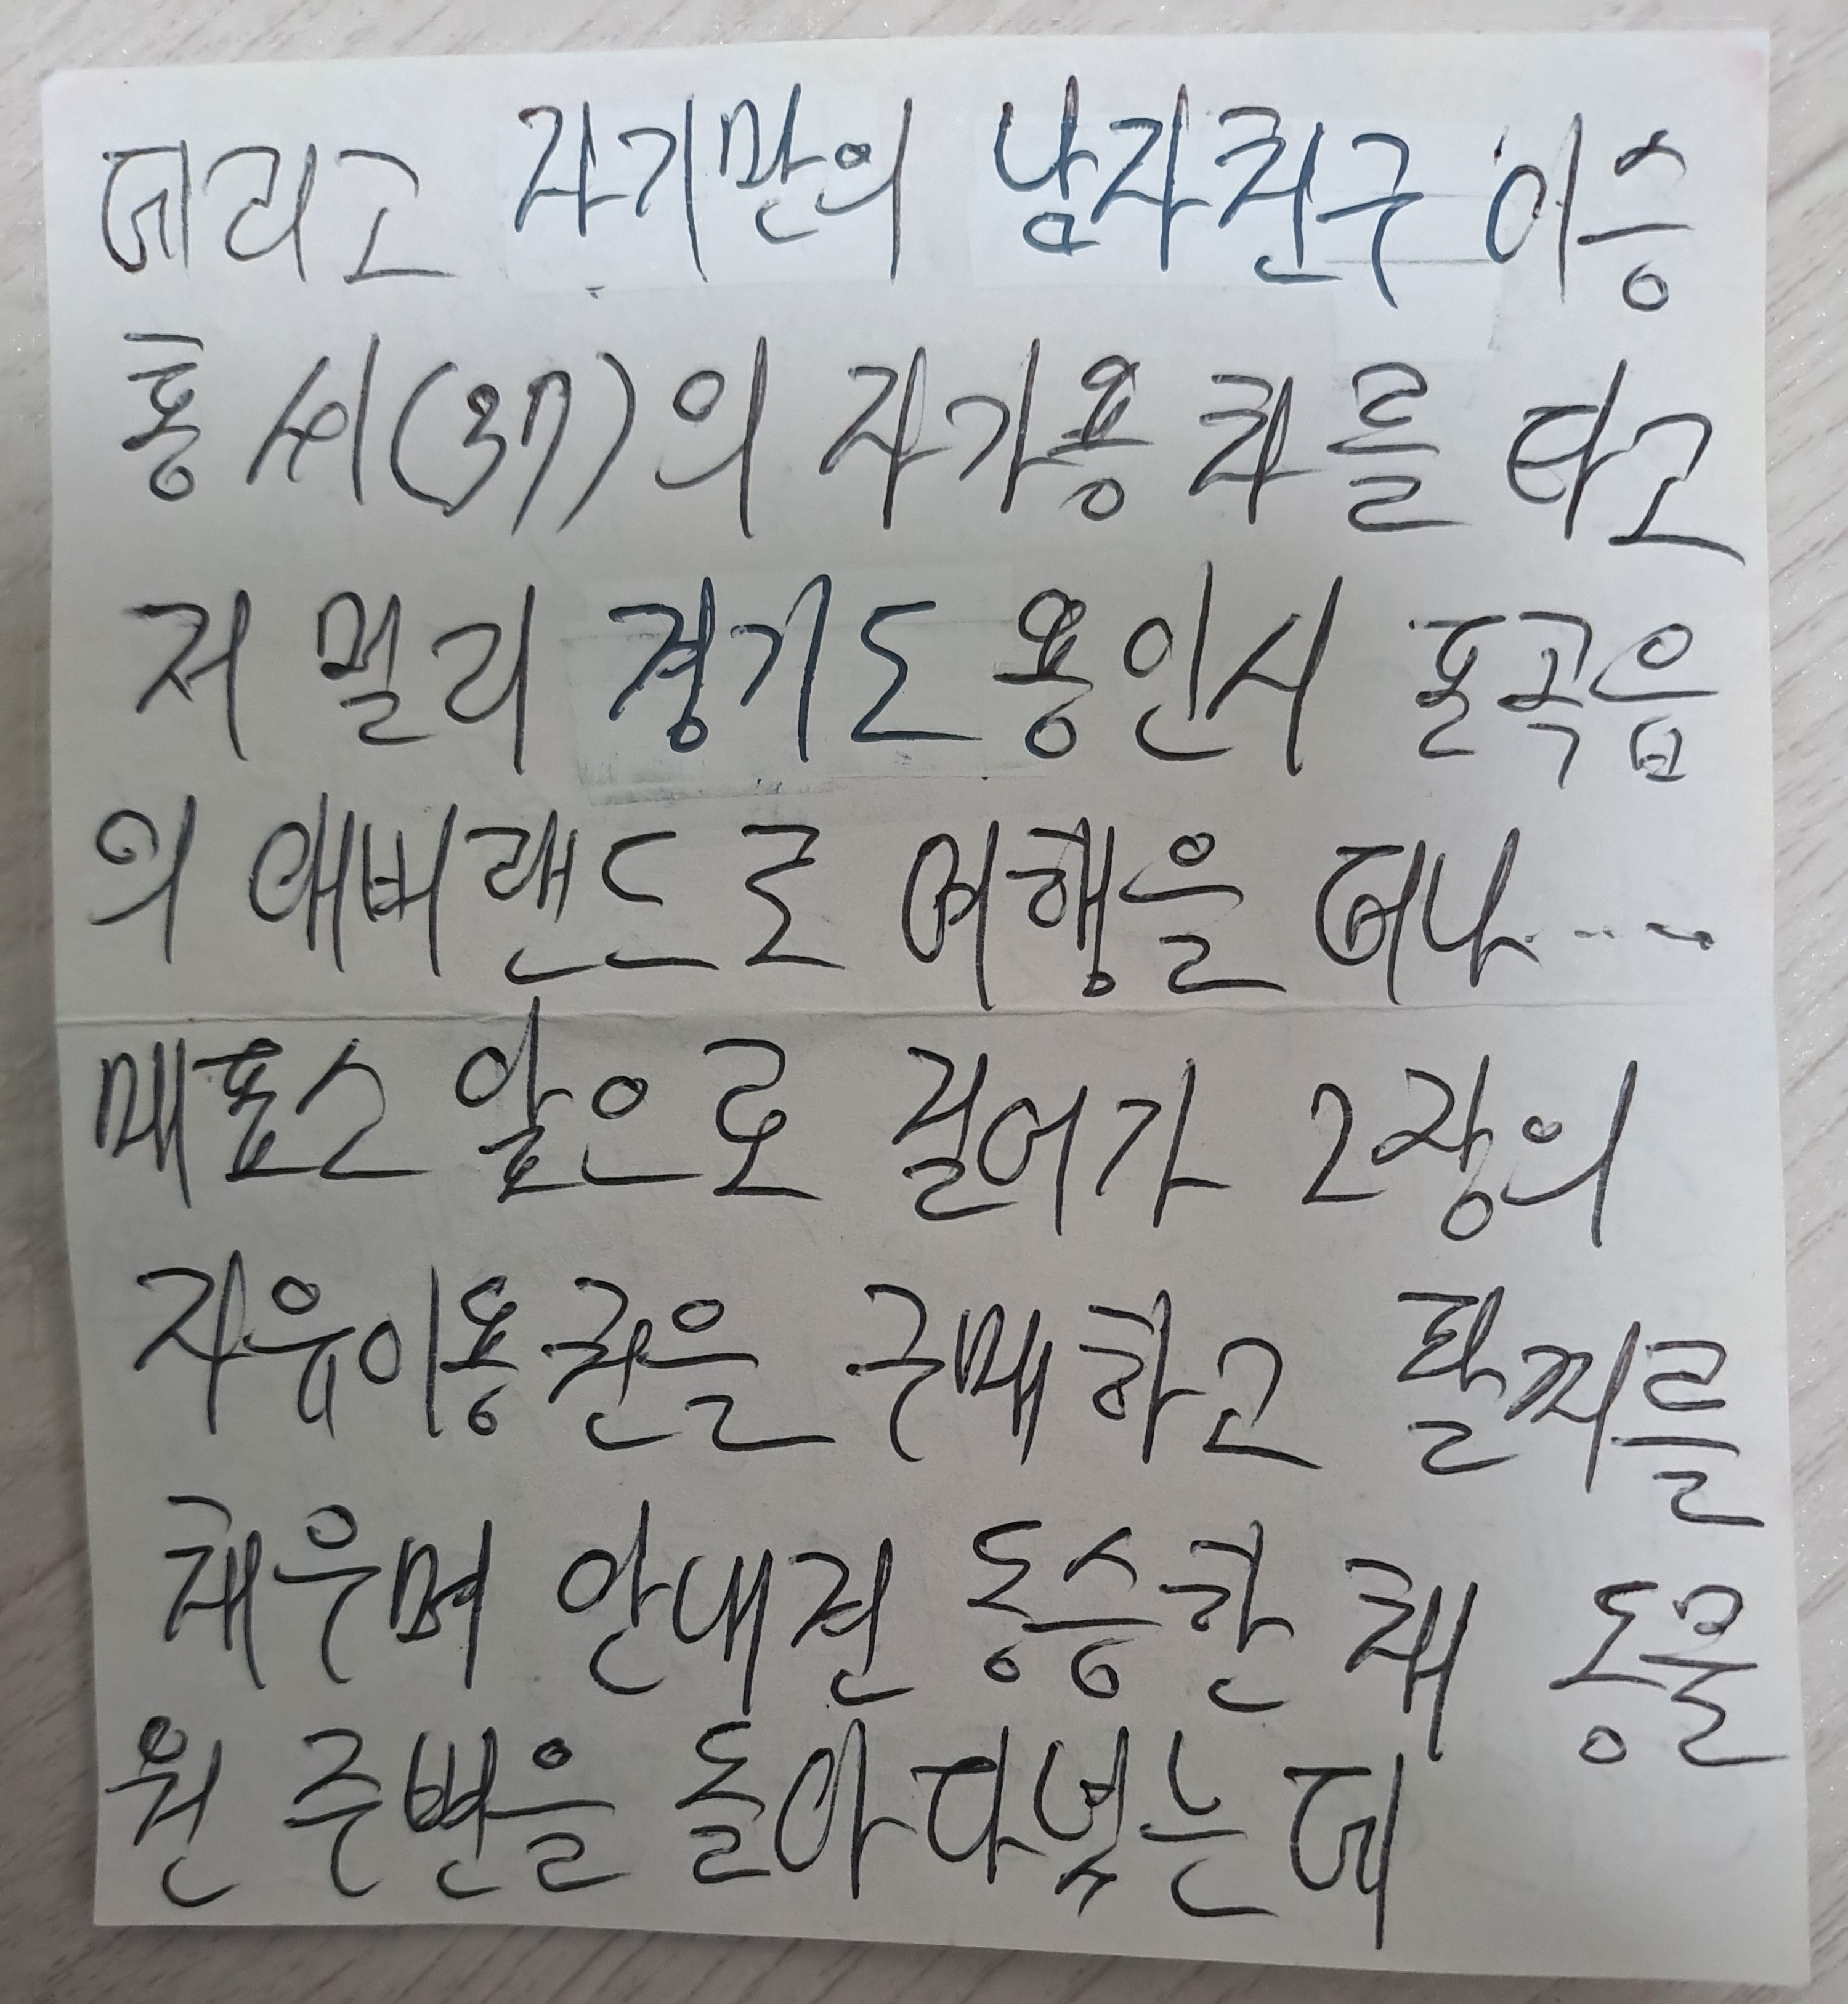 데리고 자기만의 남자친구 이승
홍 씨(37)의 자가용 차를 타고
저 멀리 경기도 용인시 포곡읍
의 애버랜드로 여행을 떠나...
매표소 앞으로 걸어가 2장의
자유이용권을 구매하고 팔찌를
채우며 안내견 동승한 채 동물
원 주변을 돌아다녔는데